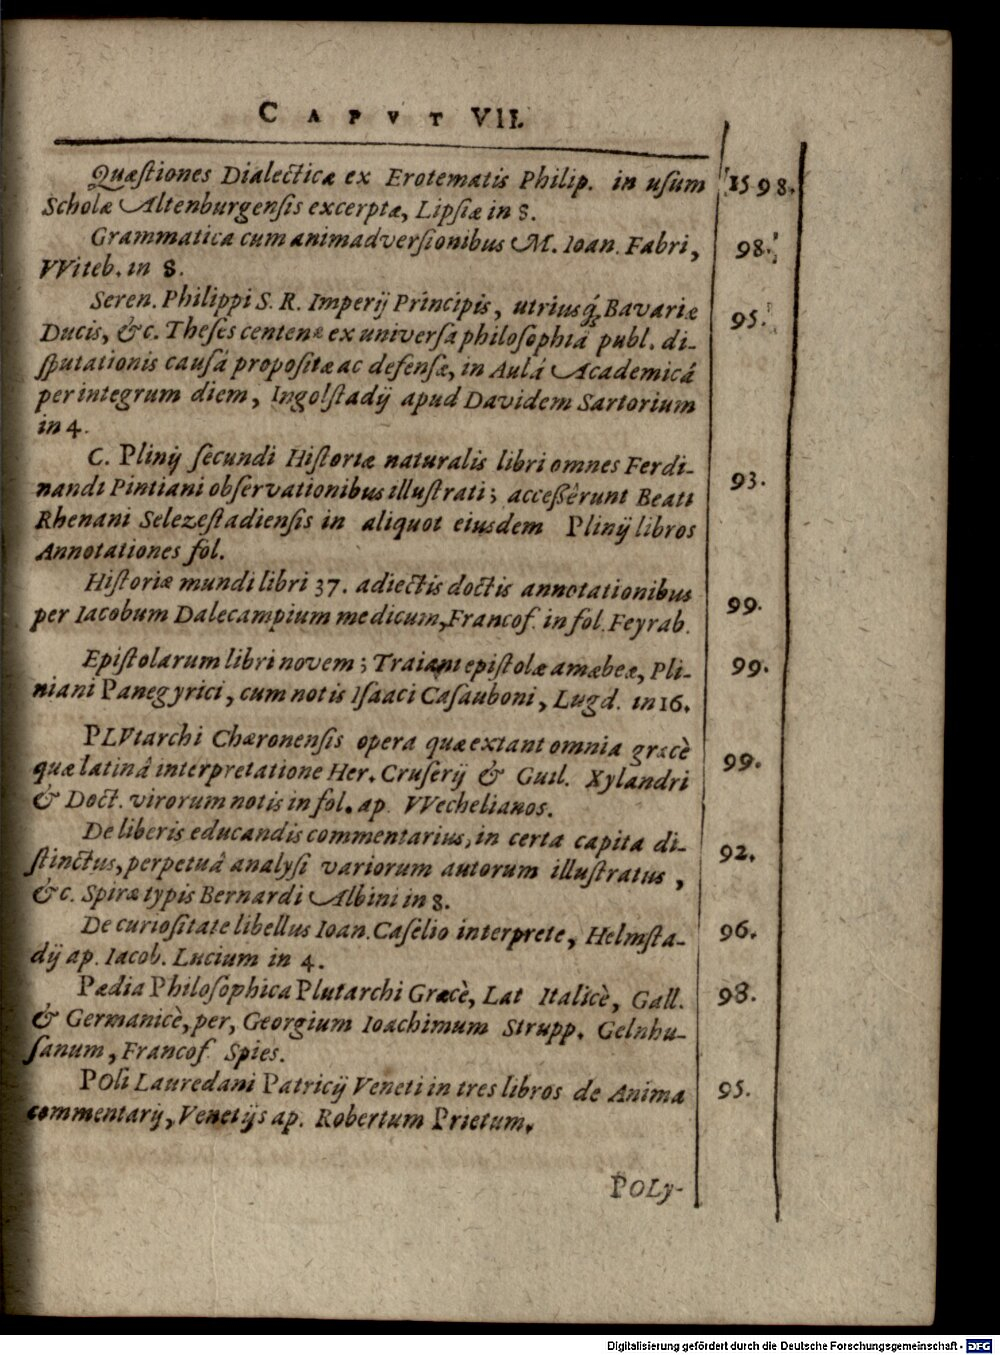 CAPVT VII.
Quæſtiones Dialecticæ ex Erotematis Philip. in uſum 1598.
Scholæ Altenburgenſis excerptæ, Lipſiæ in 8.
Grammatica cum animadverſionibus M. Ioan. Fabri, 98.
VViteb. in 8.
Seren. Philippi S. R. Imperij Principis, utriusq́; Bavariæ 95.
Ducis, &c. Theſes centenæ ex univerſa philoſophiâ publ. di-
ſputationis causâ propoſitæ ac defenſæ, in Aulâ Academicâ
per integrum diem, Ingolſtadij apud Davidem Sartorium
in 4.
C. Plinij ſecundi Hiſtoriæ naturalis libri omnes Ferdi- 93.
nandi Pintiani obſervationibus illuſtrati; acceßêrunt Beati
Rhenani Selezeſtadienſis in aliquot eiusdem Plinij libros
Annotationes fol.
Hiſtoriæ mundi libri 37. adiectis doctis annotationibus 99.
per Iacobum Dalecampium medicum, Francof. in fol. Feyrab.
Epiſtolarum libri novem; Traiani epiſtolæ amæbeæ, Pli- 99.
niani Panegyrici, cum notis Iſaaci Caſauboni, Lugd. in 16.
PLVtarchi Chæronenſis opera quæ extant omnia græcè 99.
quæ latinâ interpretatione Her. Cruſerij & Guil. Xylandri
& Doct. virorum notis in fol. ap. VVechelianos.
De liberis educandis commentarius, in certa capita di- 92.
ſtinctus, perpetuâ analyſi variorum autorum illuſtratus,
&c. Spiræ typis Bernardi Albini in 8.
De curioſitate libellus Ioan. Caſelio interprete, Helmſta- 96.
dij ap. Iacob. Lucium in 4.
Pædia Philoſophica Plutarchi Græcè, Lat Italicè, Gall. 98.
& Germanicè, per, Georgium Ioachimum Strupp. Gelnhu-
ſanum, Francof Spies.
POli Lauredani Patricij Veneti in tres libros de Anima 95.
commentarij, Venetijs ap. Robertum Prietum.
POLy-
Digitalisierung gefördert durch die Deutsche Forschungsgemeinschaft - DFG